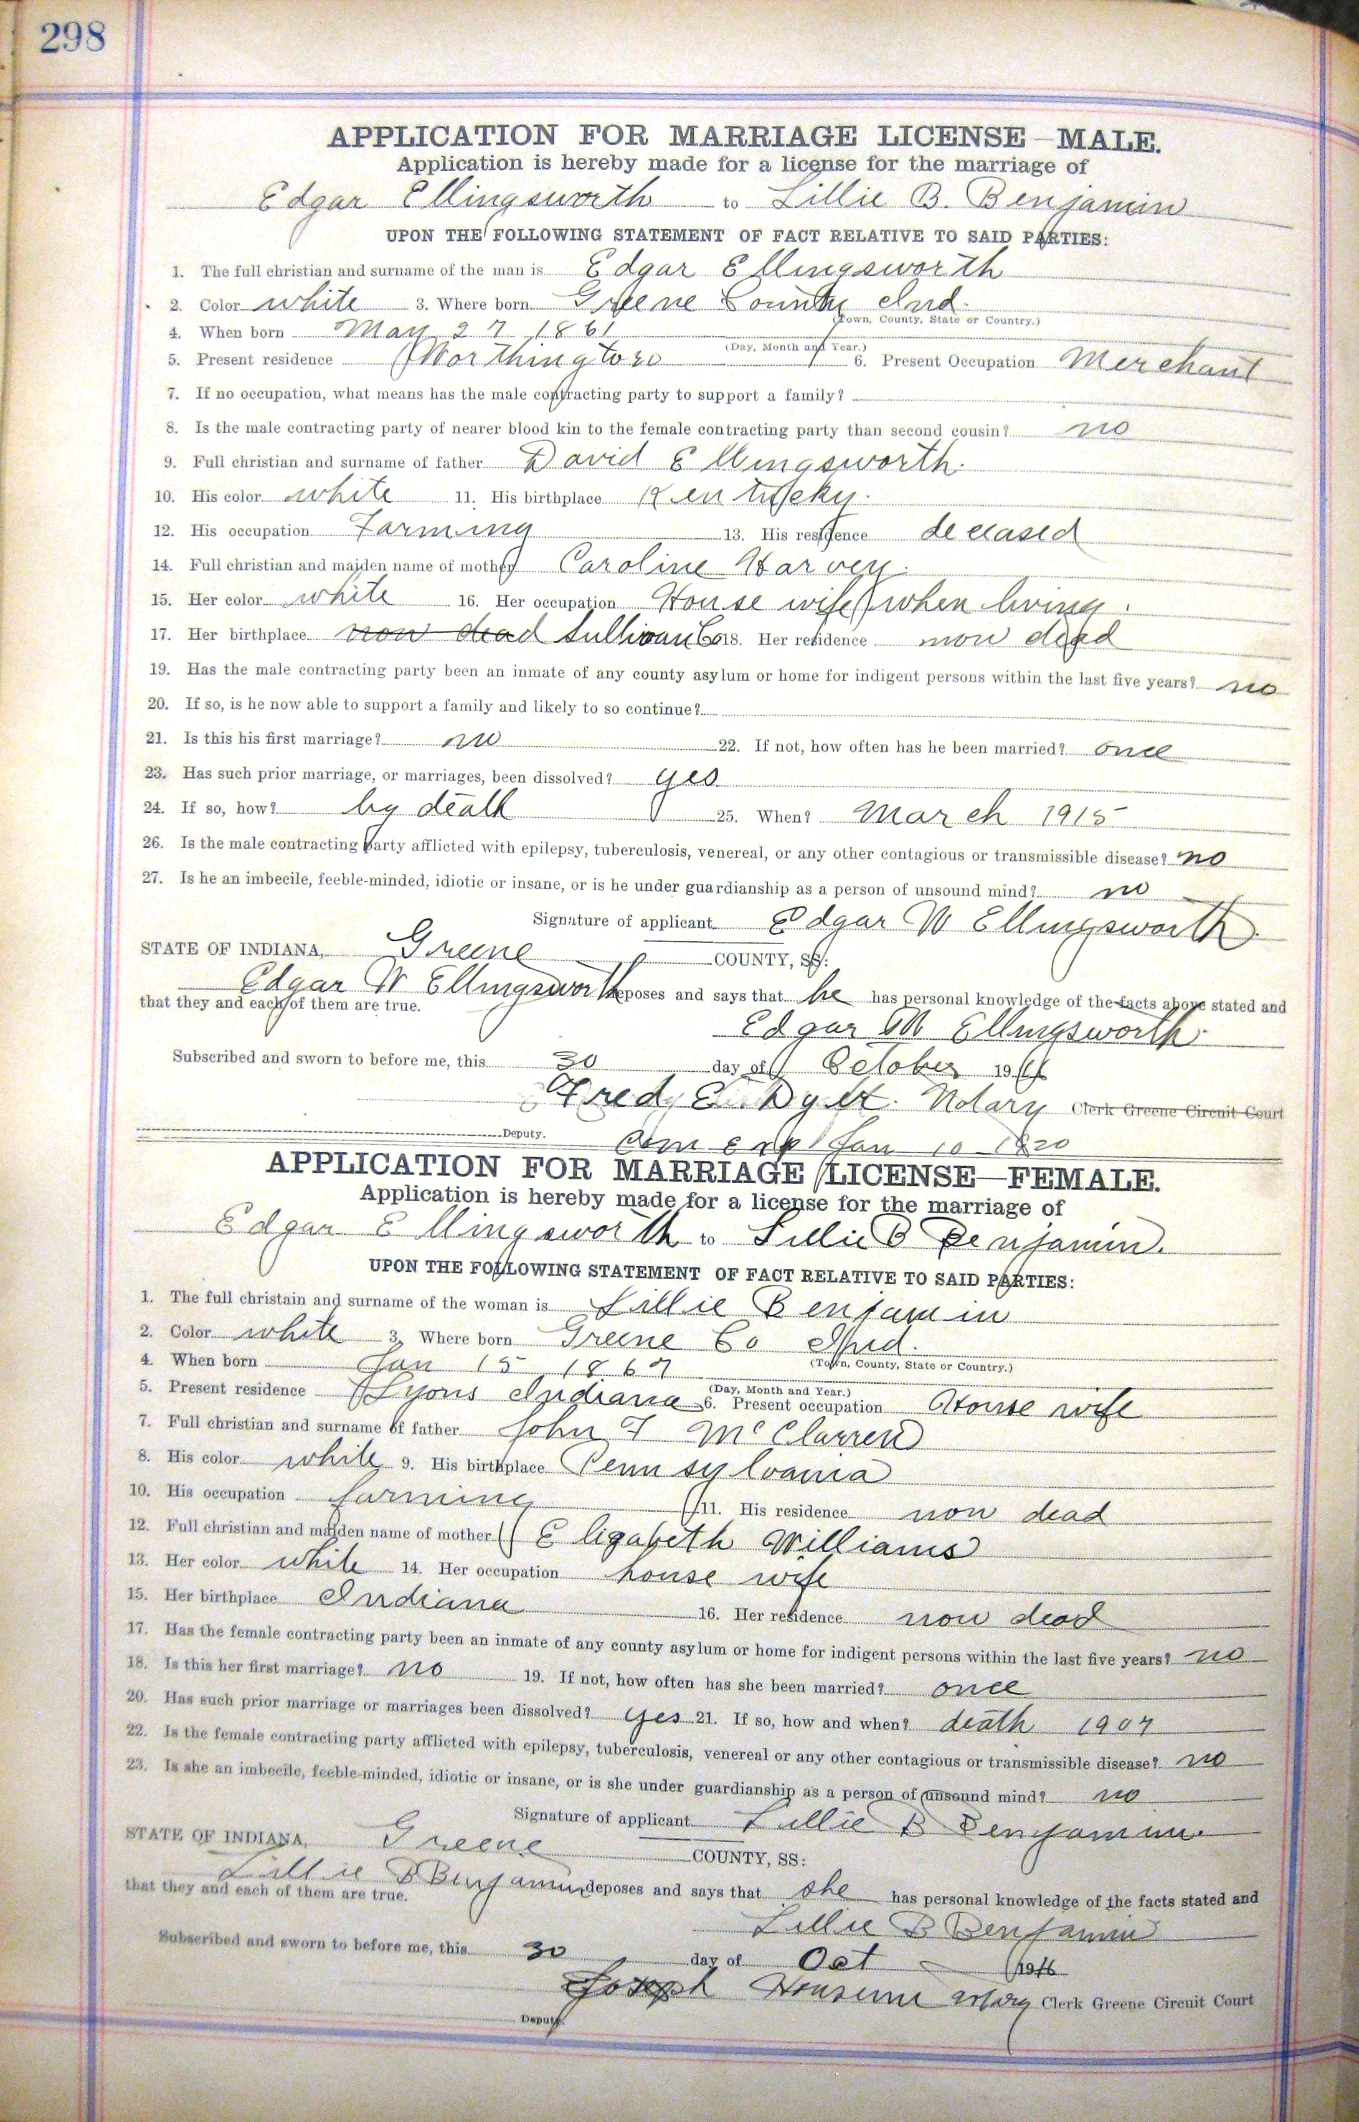 298
APPLICATION FOR MARRIAGE LICENSE—MALE.
Application is hereby made for a license for the marriage of
Edgar Ellingsworth to Lillie B. Benjamin
UPON THE FOLLOWING STATEMENT OF FACT RELATIVE TO SAID PARTIES:
1. The full christian and surname of the man is Edgar Ellingsworth
2. Color white 3. Where born Greene County Ind.
(Town, County, State or Country.)
4. When born May 27 1861
(Day, Month and Year.)
5. Present residence Worthington 6. Present Occupation Merchant
7. If no occupation, what means has the male contracting party to support a family?
8. Is the male contracting party of nearer blood kin to the female contracting party than second cousin? no
9. Full christian and surname of father David Ellingsworth.
10. His color white 11. His birthplace Kentucky.
12. His occupation Farming 13. His residence deceased
14. Full christian and maiden name of mother Caroline Harvey.
15. Her color white 16. Her occupation House wife when living.
17. Her birthplace now dead Sullivan Co 18. Her residence now dead
19. Has the male contracting party been an inmate of any county asylum or home for indigent persons within the last five years? no
20. If so, is he now able to support a family and likely to so continue?
21. Is this his first marriage? no 22. If not, how often has he been married? once
23. Has such prior marriage, or marriages, been dissolved? yes
24. If so, how? by death 25. When? March 1915
26. Is the male contracting party afflicted with epilepsy, tuberculosis, venereal, or any other contagious or transmissible disease? no
27. Is he an imbecile, feeble-minded, idiotic or insane, or is he under guardianship as a person of unsound mind? no
Signature of applicant Edgar W Ellingsworth.
STATE OF INDIANA, Greene COUNTY, SS:
Edgar W Ellingsworth deposes and says that he has personal knowledge of the facts above stated and
that they and each of them are true.
Edgar W Ellingsworth.
Subscribed and sworn to before me, this 30 day of October 1916
Fred E. Dyer. Notary Clerk Greene Circuit Court
Deputy. Com Exp Jan 10 1920
APPLICATION FOR MARRIAGE LICENSE—FEMALE.
Application is hereby made for a license for the marriage of
Edgar Ellingsworth to Lillie B Benjamin.
UPON THE FOLLOWING STATEMENT OF FACT RELATIVE TO SAID PARTIES:
1. The full christain and surname of the woman is Lillie Benjamin
2. Color white 3. Where born Greene Co Ind.
(Town, County, State or Country.)
4. When born Jan 15 1867
(Day, Month and Year.)
5. Present residence Lyons Indiana 6. Present occupation House wife
7. Full christian and surname of father John F McClarren
8. His color white 9. His birthplace Pennsylvania
10. His occupation farming 11. His residence now dead
12. Full christian and maiden name of mother Elizabeth Williams
13. Her color white 14. Her occupation house wife
15. Her birthplace Indiana 16. Her residence now dead
17. Has the female contracting party been an inmate of any county asylum or home for indigent persons within the last five years? no
18. Is this her first marriage? no 19. If not, how often has she been married? once
20. Has such prior marriage or marriages been dissolved? yes 21. If so, how and when? death 1907
22. Is the female contracting party afflicted with epilepsy, tuberculosis, venereal or any other contagious or transmissible disease? no
23. Is she an imbecile, feeble-minded, idiotic or insane, or is she under guardianship as a person of unsound mind? no
Signature of applicant Lillie B Benjamin
STATE OF INDIANA, Greene COUNTY, SS:
Lillie B Benjamin deposes and says that she has personal knowledge of the facts stated and
that they and each of them are true.
Lillie B Benjamin
Subscribed and sworn to before me, this 30 day of Oct 1916
Joseph Notary Clerk Greene Circuit Court
Deputy.